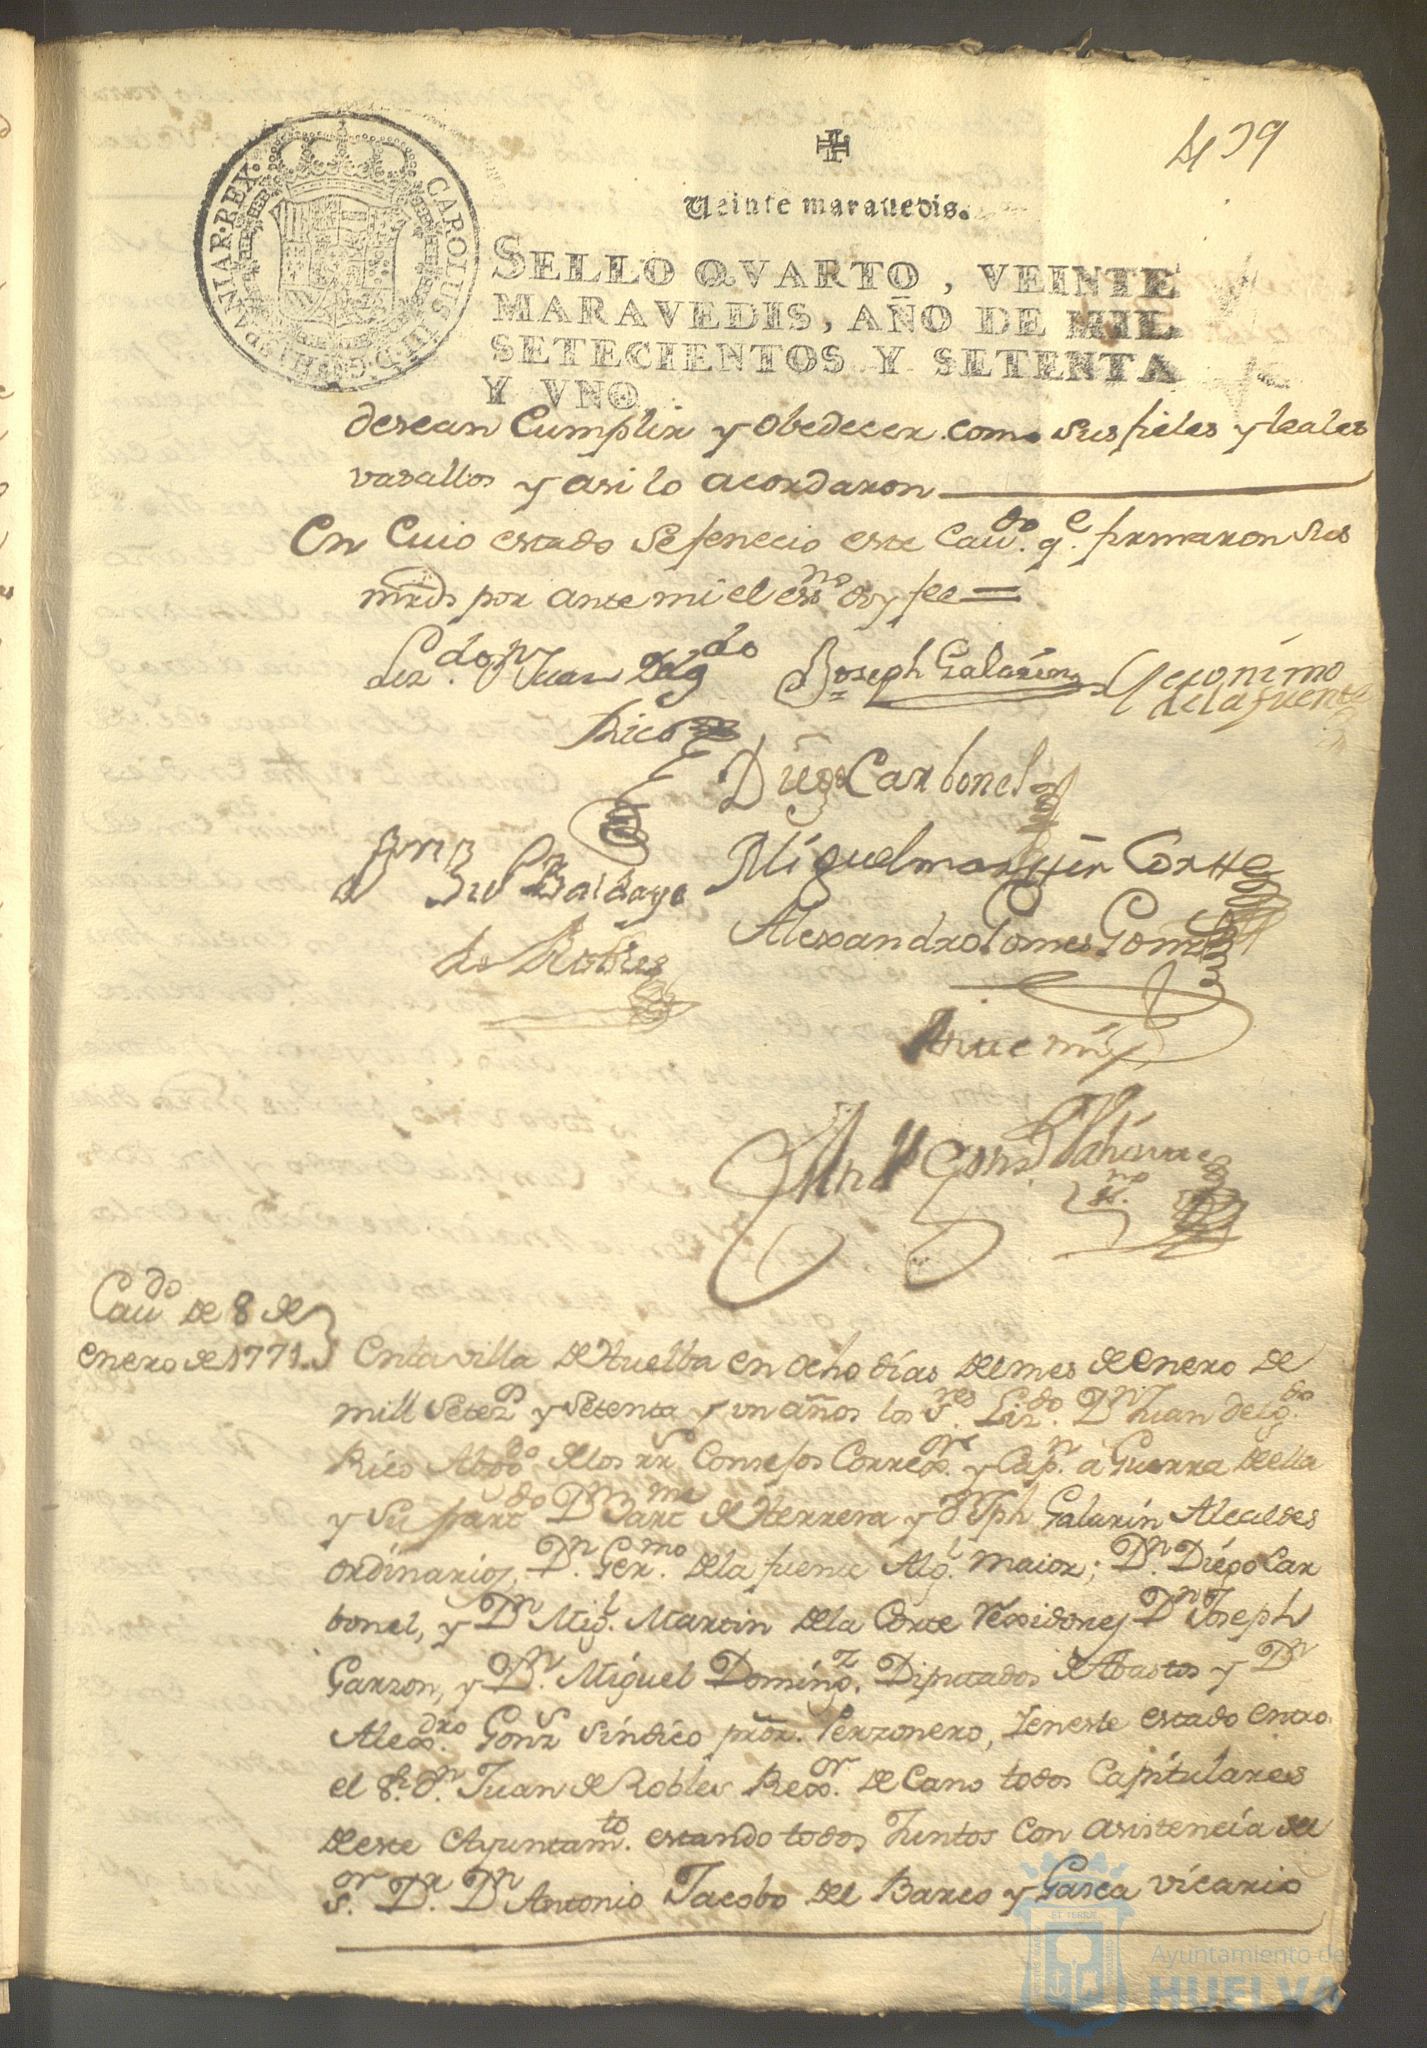 439
Veinte maravedis.
CAROLUS III. D. G. HISPANIAR. REX.
SELLO QVARTO, VEINTE
MARAVEDIS, AÑO DE MIL
SETECIENTOS Y SETENTA
Y VNO.
desean Cumplir y obedecer como sus fieles y leales
vasallos y asi lo acordaron
En Cuio estado se fenecio este Cauᵈᵒ. qᵉ. firmaron sus
mrds por ante mi el essⁿᵒ doy fee =
Lizᵈᵒ. Dⁿ Juan Delgᵈᵒ
Rico
Joseph Galarin
Geronimo
de la fuente
Diego Carbonel
Miguel martin Corte
de Robles
Alexandro Gomes
Ante mi
Cauᵈᵒ de 8 de
enero de 1771.
En la villa de Huelba en ocho días del mes de enero de
mill setezˢ y setenta y un años los Sʳᵉˢ. Lizᵈᵒ. Dⁿ Juan delgᵈᵒ.
Rico Abogᵈᵒ de los rrˢ Consejos Corregᵒʳ. y Capⁿ. a Guerra de ella
y su partᵈᵒ Dⁿ Bartᵐᵉ de Herrera y Dⁿ Jph Galarín Alcaldes
ordinarios; Dⁿ. Gerᵐᵒ. de la fuente Algˡ. maior; Dⁿ. Diego Car
bonel, y Dⁿ Migˡ. Martin de la Corte Rexidores Dⁿ Joseph
Garzon, y Dⁿ. Miguel Domíngᶻ. Diputados de Abastos y Dⁿ
Alexᵈʳᵒ. Gonzˢ síndico pror. Perzonero, y en este estado entro
el Sʳ. Dⁿ. Juan de Robles Regᵒʳ. Decano todos Capítulares
de este Ayuntamᵗᵒ. estando todos Juntos con asistencía del
Sᵒʳ. Dʳ. Dⁿ Antonio Jacobo del Barco y Gasca vicario
Ayuntamiento de
HUELVA